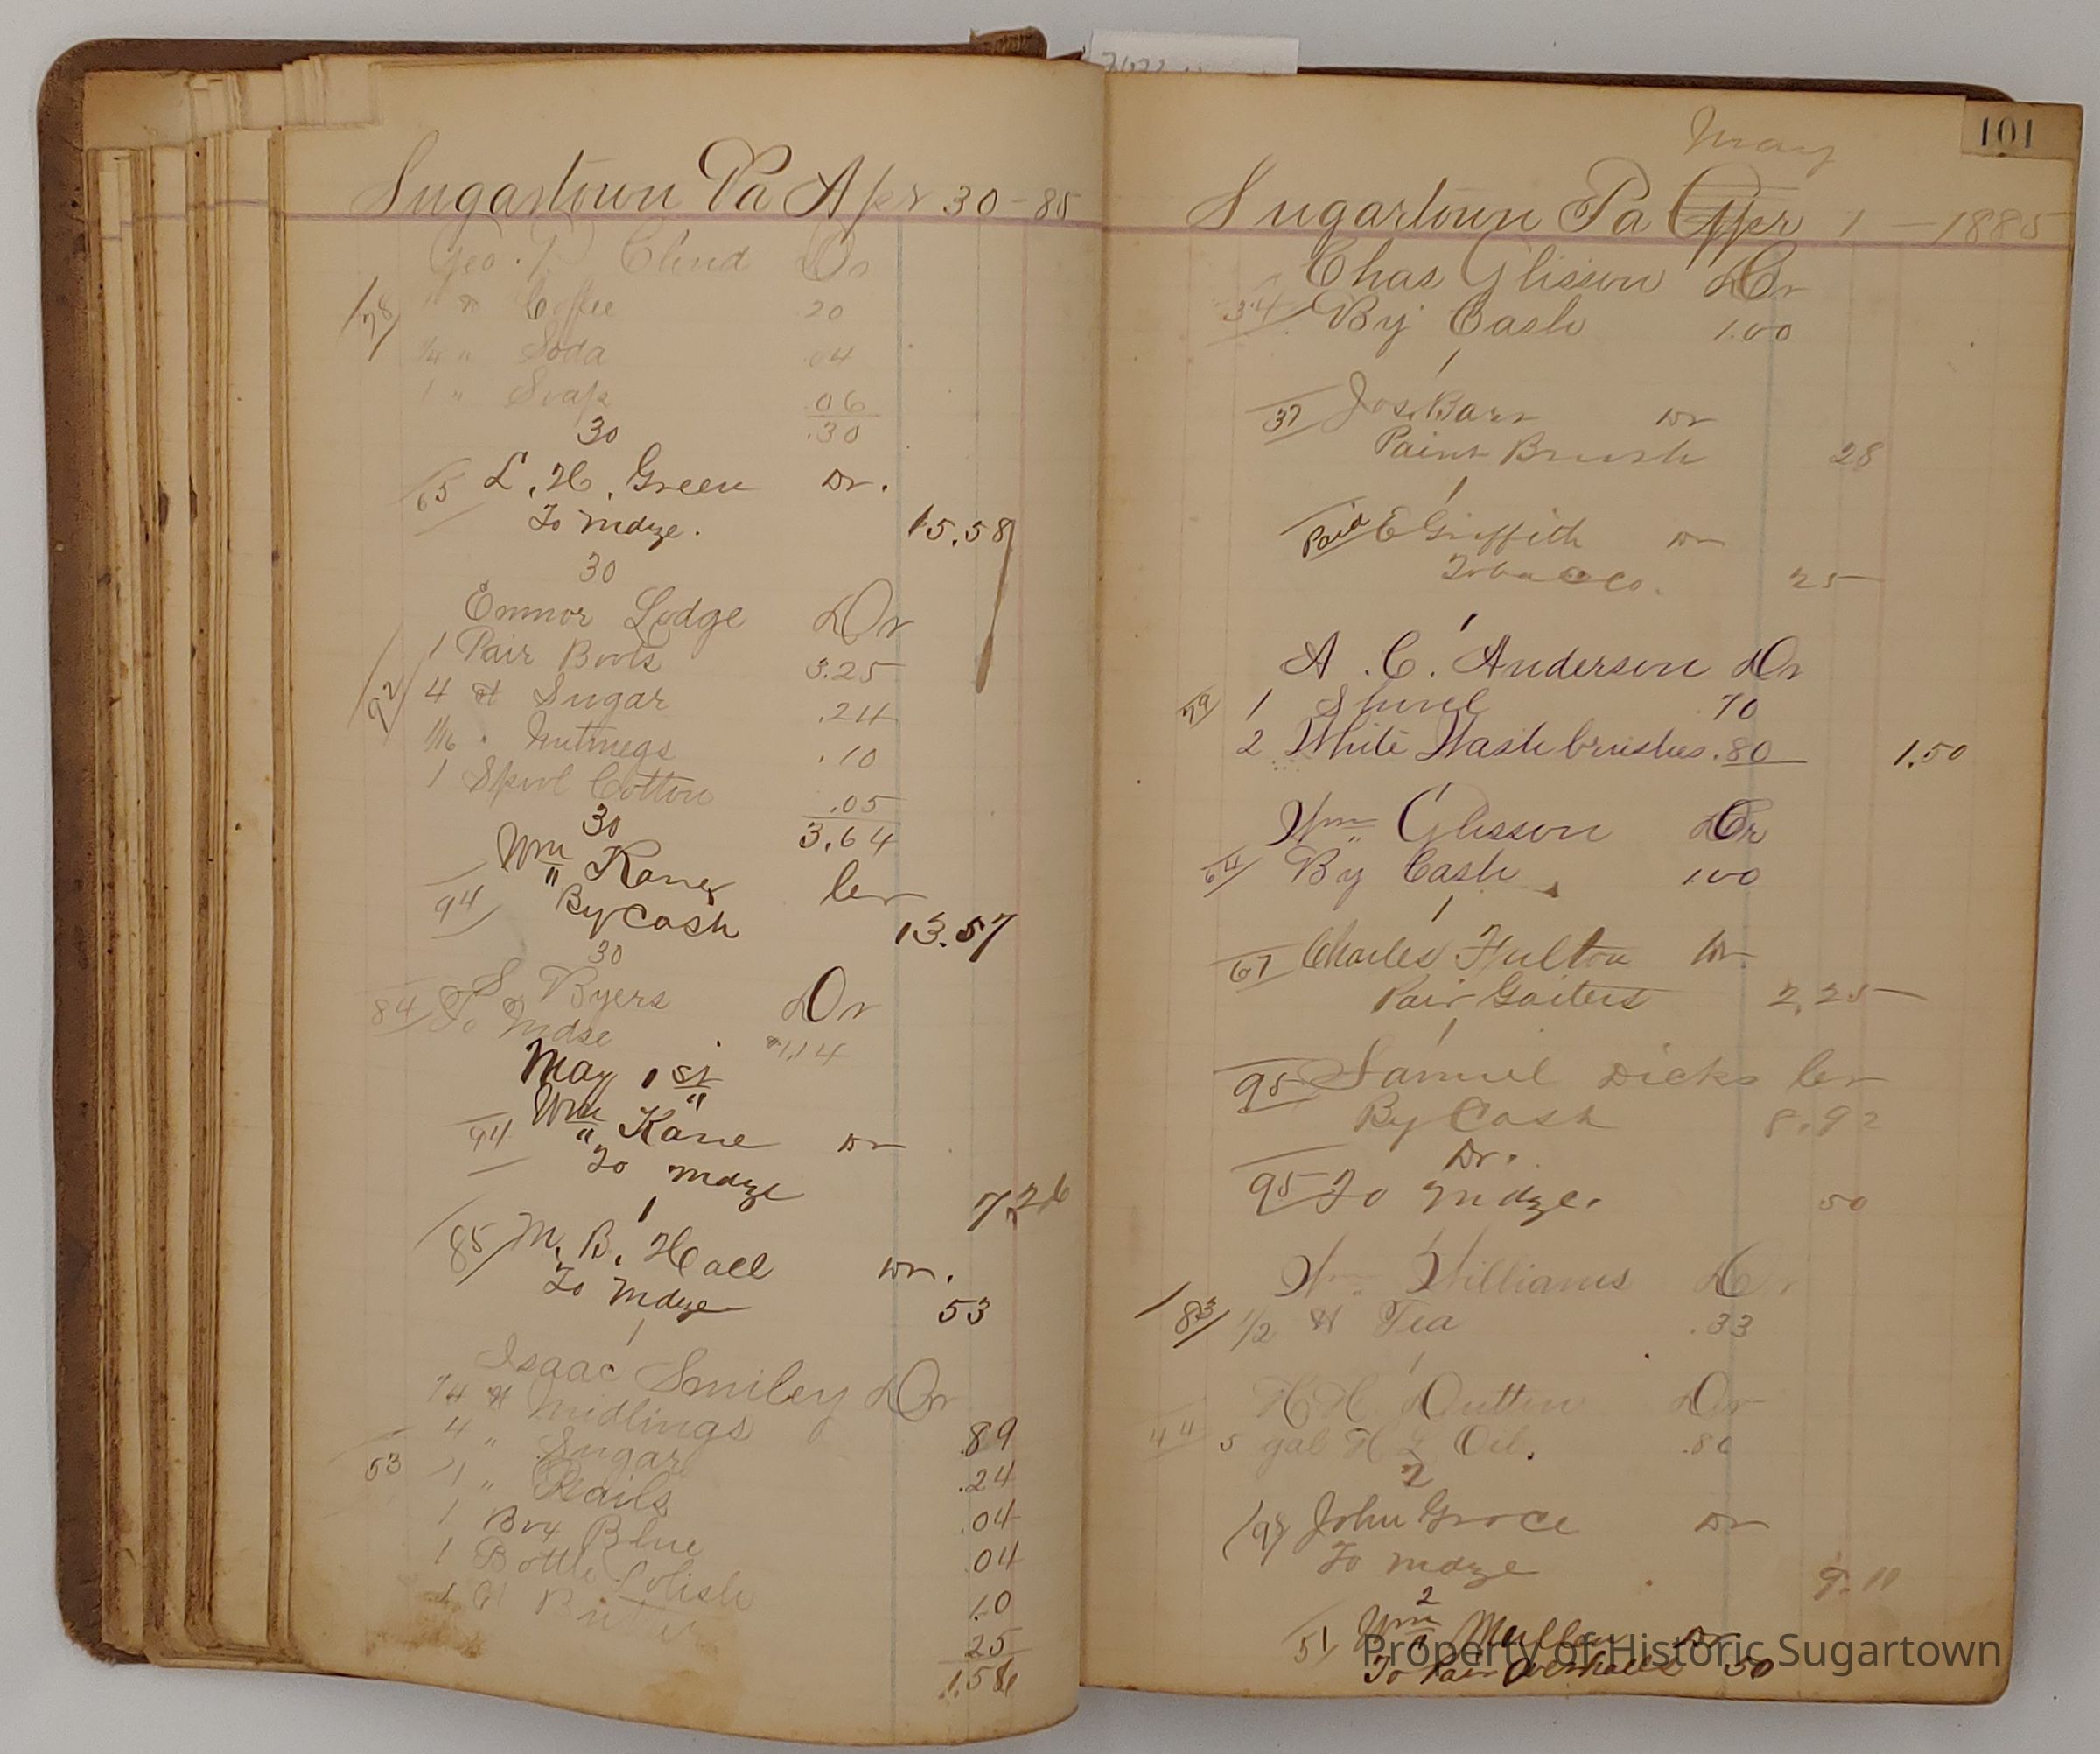 Sugartown Pa Apr 30 - 85
Geo. P. Dr
78
1 ℔ Coffee 20
1/4 " Soda .04
1 " Soap .06
.30
30
65 L. H. Green Dr.
To Mdze. 15.58
30
Emmor Lodge Dr
1 Pair Boots 3.25
92
4 ℔ Sugar .24
1/16 " Nutmegs .10
1 Spool Cotton .05
3.64
30
Wm Kane Cr
94 By Cash 13.57
30
S Byers Dr
84 To Mdse 1.14
May 1st
Wm Kane Dr
94 To Mdze 7.26
1
85 M. B. Hall Dr.
To Mdze 53
1
Isaac Smiley Dr
74 ℔ Midlings .89
4 " Sugar .24
53
1 " Nails .04
1 Box Blue .04
1 Bottle Polish 10
1 ℔ Butter 25
1.56
101
May
Sugartown Pa Apr 1 - 1885
Chas Glisson Cr
34 By Cash 1.00
1
37 Jos. Barr Dr
Paint Brush 28
1
Paid E Griffith Dr
Tobacco. 25
1
A. C. Anderson Dr
79 1 Shovel 70
2 White Wash brushes .80 1.50
1
Wm Glisson Cr
64 By Cash 1.00
1
67 Charles Fulton Dr
Pair Gaiters 2.25
1
95 Samuel Dicks Cr
By Cash 8.92
Dr.
95 To Mdze. 50
1
Wm Williams Dr
83 1/2 ℔ Tea .33
1
H. H. Dutton Dr
44 5 gal H L Oil.
2
98 John Grace Dr
To Mdze 9.11
2
51 Wm Mullen Dr
To Pair Overhalls 50
Property of Historic Sugartown